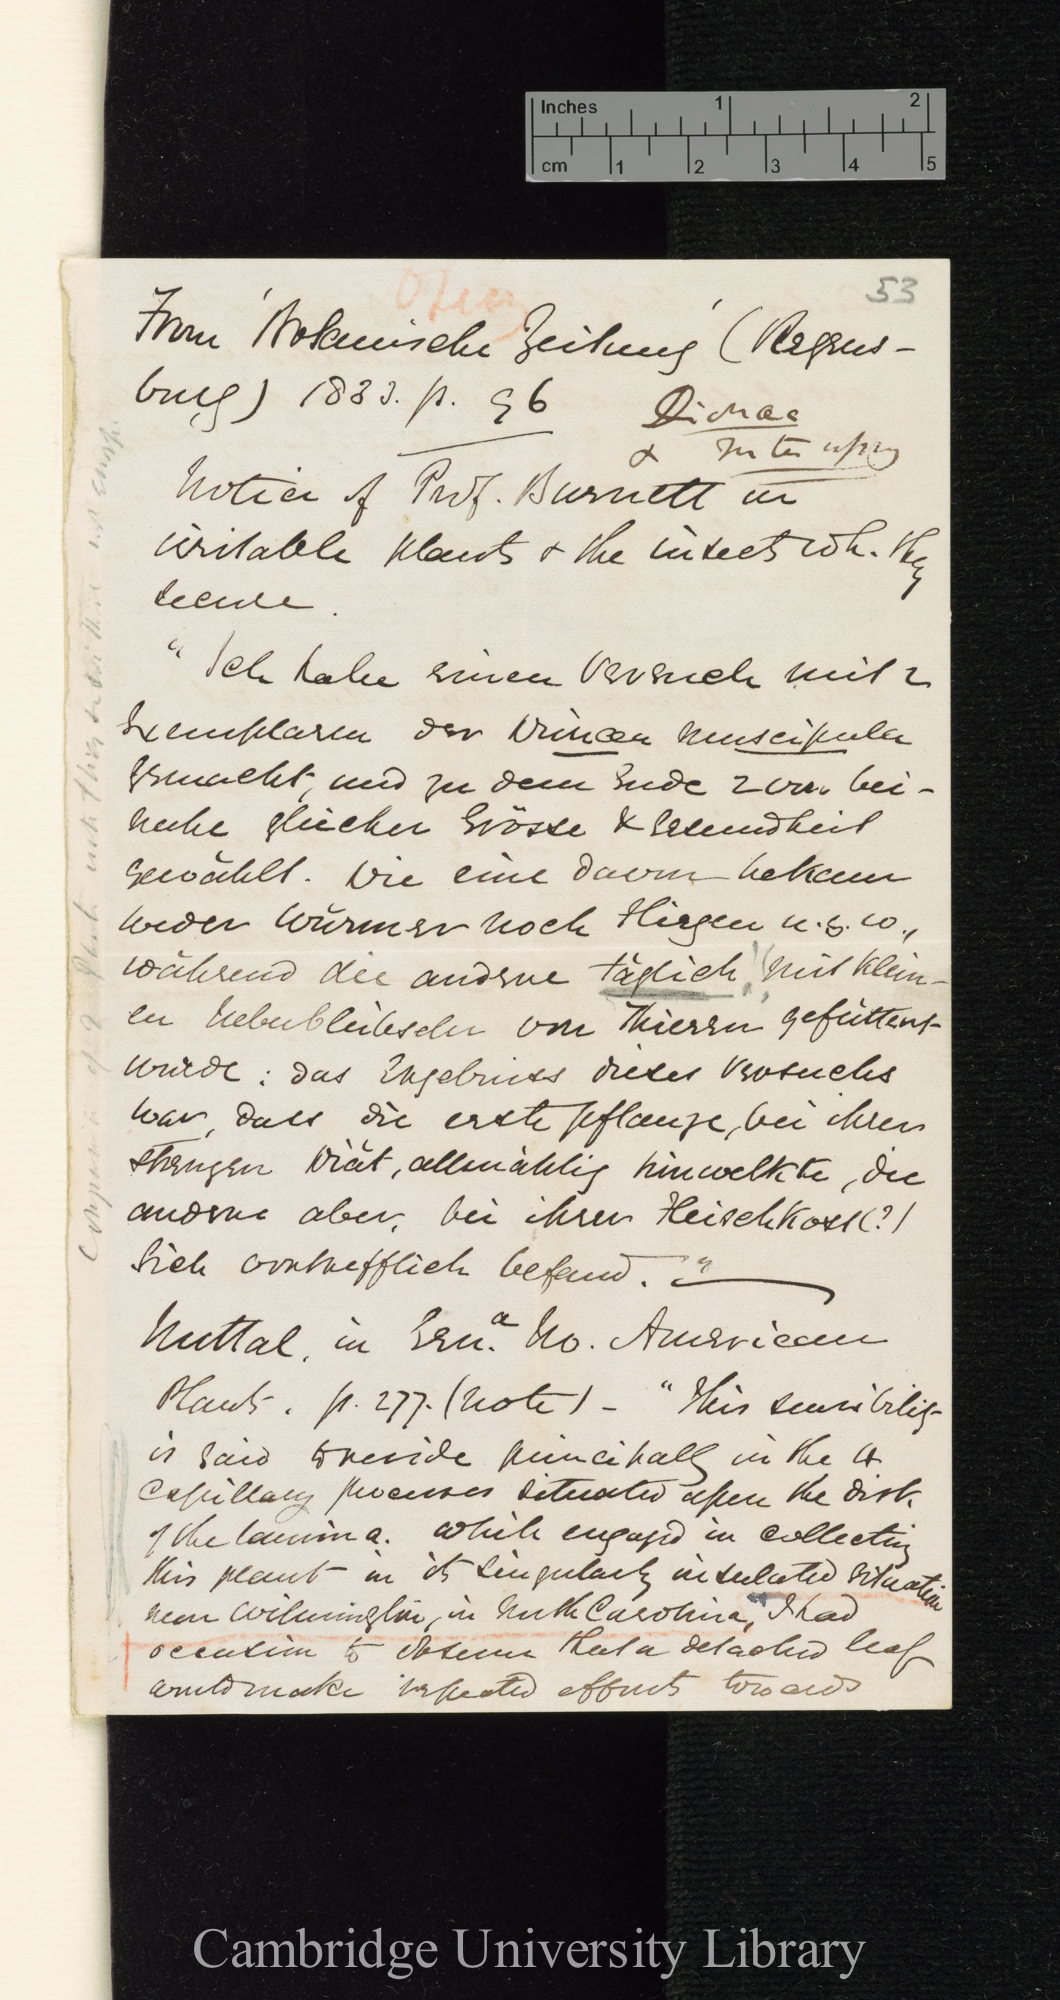 Inches 1 2
cm 1 2 3 4 5
53
From 'Botanische Zeitung' (Regens-
burg) 1833. p. 96
Dionaea
&
Notice of Prof. Burnett on
irritable plants & the insects wh. they
secure.
"Ich habe einen Versuch mit 2
Exemplaren der Dionaea muscipula
gemacht, und zu dem Ende 2 von bei-
nahe gleicher Grösse & Gesundheit
gewählt. Die eine davon bekam
weder Würmer noch Fliegen u.s.w.,
während die andere täglich mit klein-
en Ueberbleibseln von Thieren gefüttert
wurde: das Ergebniss dieses Versuchs
war, dass die erste Pflanze, bei ihrer
strengen Diät, allmählig hinwelkte, die
andere aber, bei ihrer Fleischkost(?)
sich vortrefflich befand."
Nuttal, in Gen.a No. American
Plants. p. 277. (note) - "This sensibility
is said to reside principally in the
capillary processes situated upon the disk
of the lamina. While engaged in collecting
this plant in its singularly insulated situation
near Wilmington, in North Carolina, I had
occasion to observe that a detached leaf
would make repeated efforts towards
Cambridge University Library